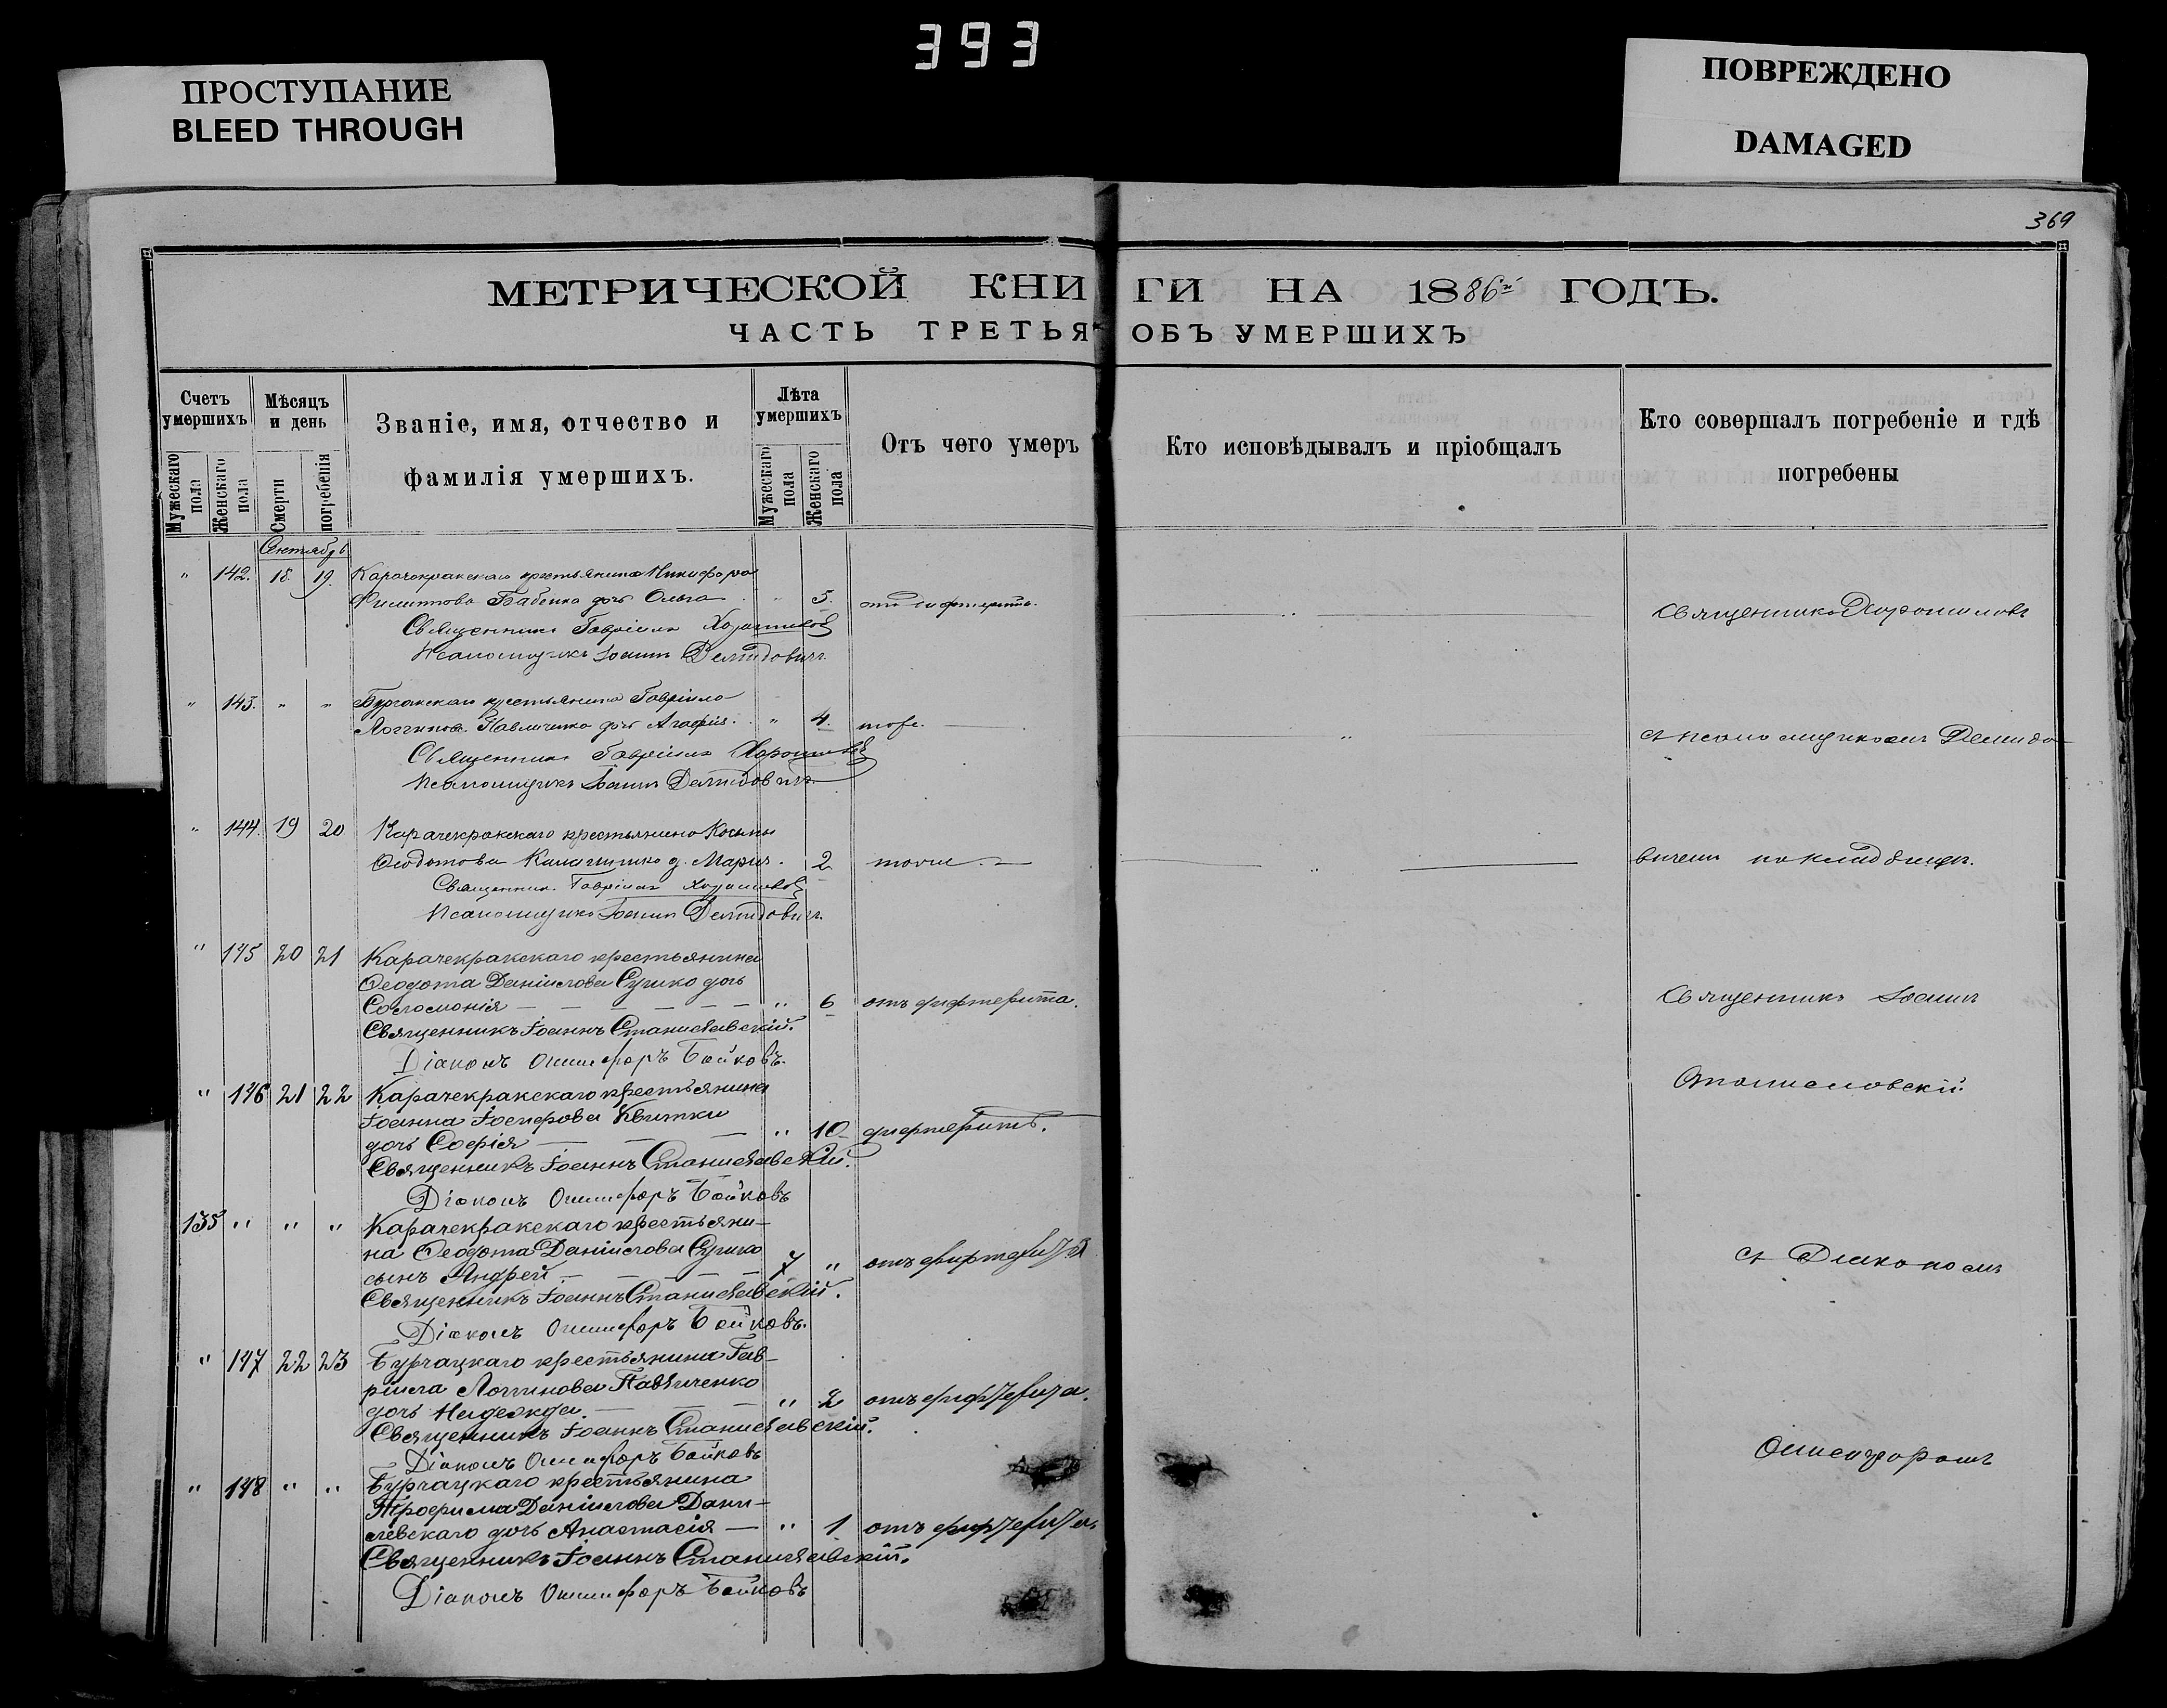 393
ПРОСТУПАНИЕ
BLEED THROUGH
ПОВРЕЖДЕНО
DAMAGED
369
МЕТРИЧЕСКОЙ КНИГИ НА 1886й ГОДЪ.
ЧАСТЬ ТРЕТЬЯ ОБЪ УМЕРШИХЪ
Счетъ умершихъ
Мужескаго пола
Женскаго пола
Мѣсяцъ и день
Смерти
погребенія
Званіе, имя, отчество и
фамилія умершихъ.
Лѣта умершихъ
Мужескаго пола
Женскаго пола
Отъ чего умеръ
Кто исповѣдывалъ и пріобщалъ
Кто совершалъ погребеніе и гдѣ
погребены
Сентябрь
" 142. 18. 19. Карачекракскаго крестьянина Никифора
Филиппова Бабенка дочь Ольга " 5. отъ дифтерита.
Священникъ Хорошиловъ
Священникъ Гавріилъ Хорошиловъ
Псаломщикъ Іоаннъ Демидовичъ.
" 143. " " крестьянина Гавріила
Логгинова Павличенка дочь Агафія. " 4. тоже.
съ псаломщикомъ Демидо-
Священникъ Гавріилъ Хорошиловъ
Псаломщикъ Іоаннъ Демидовичъ.
" 144. 19 20 Карачекракскаго крестьянина Космы
Ѳеодотова д. Марія. 2
вичемъ на кладбищѣ.
Священникъ Гавріилъ Хорошиловъ
Псаломщикъ Іоаннъ Демидовичъ.
" 145 20 21 Карачекракскаго крестьянина
Ѳеодота Даніилова Сушко дочь
Соломонія — " 6 отъ дифтерита.
Священникъ Іоаннъ
Священникъ Іоаннъ Станиславскій.
Діаконъ Онисифоръ Бойковъ.
Станиславскій
" 146 21 22 Карачекракскаго крестьянина
Іоанна Іосифова Квитки
дочь Софія — " 10 дифтеритъ.
Священникъ Іоаннъ Станиславскій.
Діаконъ Онисифоръ Бойковъ
135 " " " Карачекракскаго крестьяни-
на Ѳеодота Даніилова Сушко
сынъ Андрей — 7 " отъ дифтерита
съ Діакономъ
Священникъ Іоаннъ Станиславскій.
Діаконъ Онисифоръ Бойковъ.
" 147 22 23 Бурчацкаго крестьянина Гав-
ріила Логинова Павличенко
дочь Надежда. — " 2 отъ дифтерита.
Священникъ Іоаннъ Станиславскій.
Діаконъ Онисифоръ Бойковъ
Онисифоромъ
" 148 " " Бурчацкаго крестьянина
Трофима Даніилова Дани-
левскаго дочь Анастасія — " 1 отъ дифтерита.
Священникъ Іоаннъ Станиславскій.
Діаконъ Онисифоръ Бойковъ